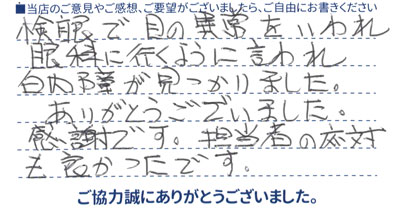 ■当店のご意見やご感想、ご要望がございましたら、ご自由にお書きください
検眼で目の異常をいわれ
眼科に行くように言われ
白内障が見つかりました。
ありがとうございました。
感謝です。担当者の応対
も良かったです。
ご協力誠にありがとうございました。